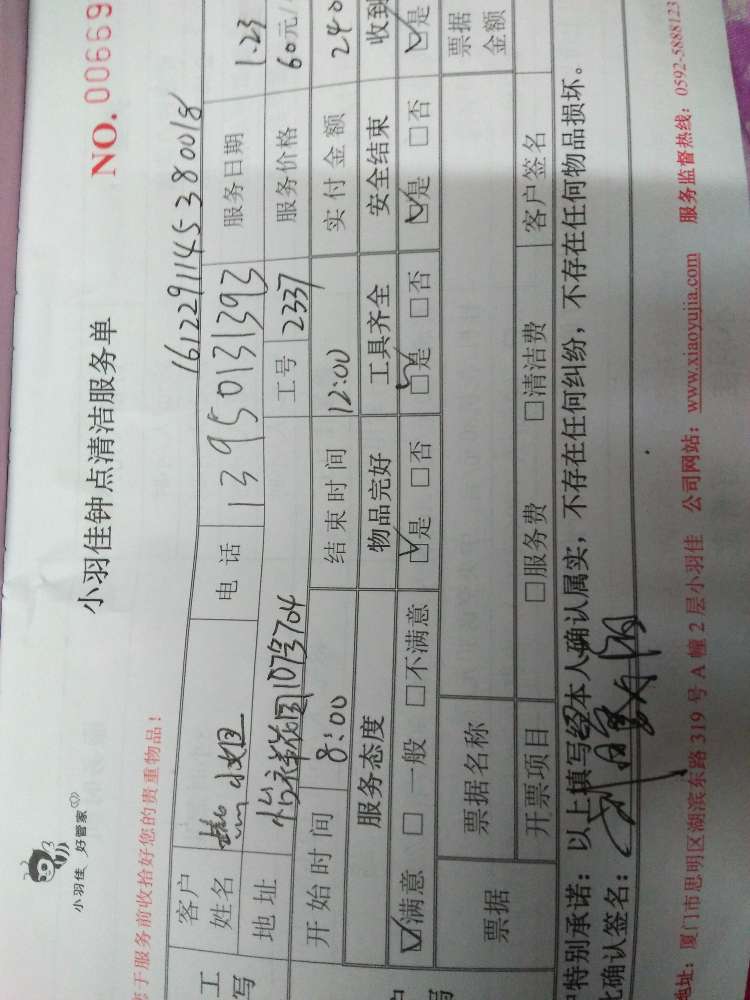 小羽佳 好管家
小羽佳钟点清洁服务单
NO. 00669
于服务前收拾好您的贵重物品!
1612291145380018
工 客户姓名 小姐 电话 13950131393 服务日期 1.23
写 地址 怡祥花园10号704 工号 2337 服务价格 60元/
开始时间 8:00 结束时间 12:00 实付金额 240
服务态度 物品完好 工具齐全 安全结束 收到
☑满意 □一般 □不满意 ☑是 □否 ☑是 □否 ☑是 □否 ☑是
票据 票据名称 票据金额
开票项目 □服务费 □清洁费 客户签名
特别承诺:以上填写经本人确认属实,不存在任何纠纷,不存在任何物品损坏。
此确认签名:
地址:厦门市思明区湖滨东路319号A幢2层小羽佳 公司网站:www.xiaoyujia.com 服务监督热线:0592-5888123